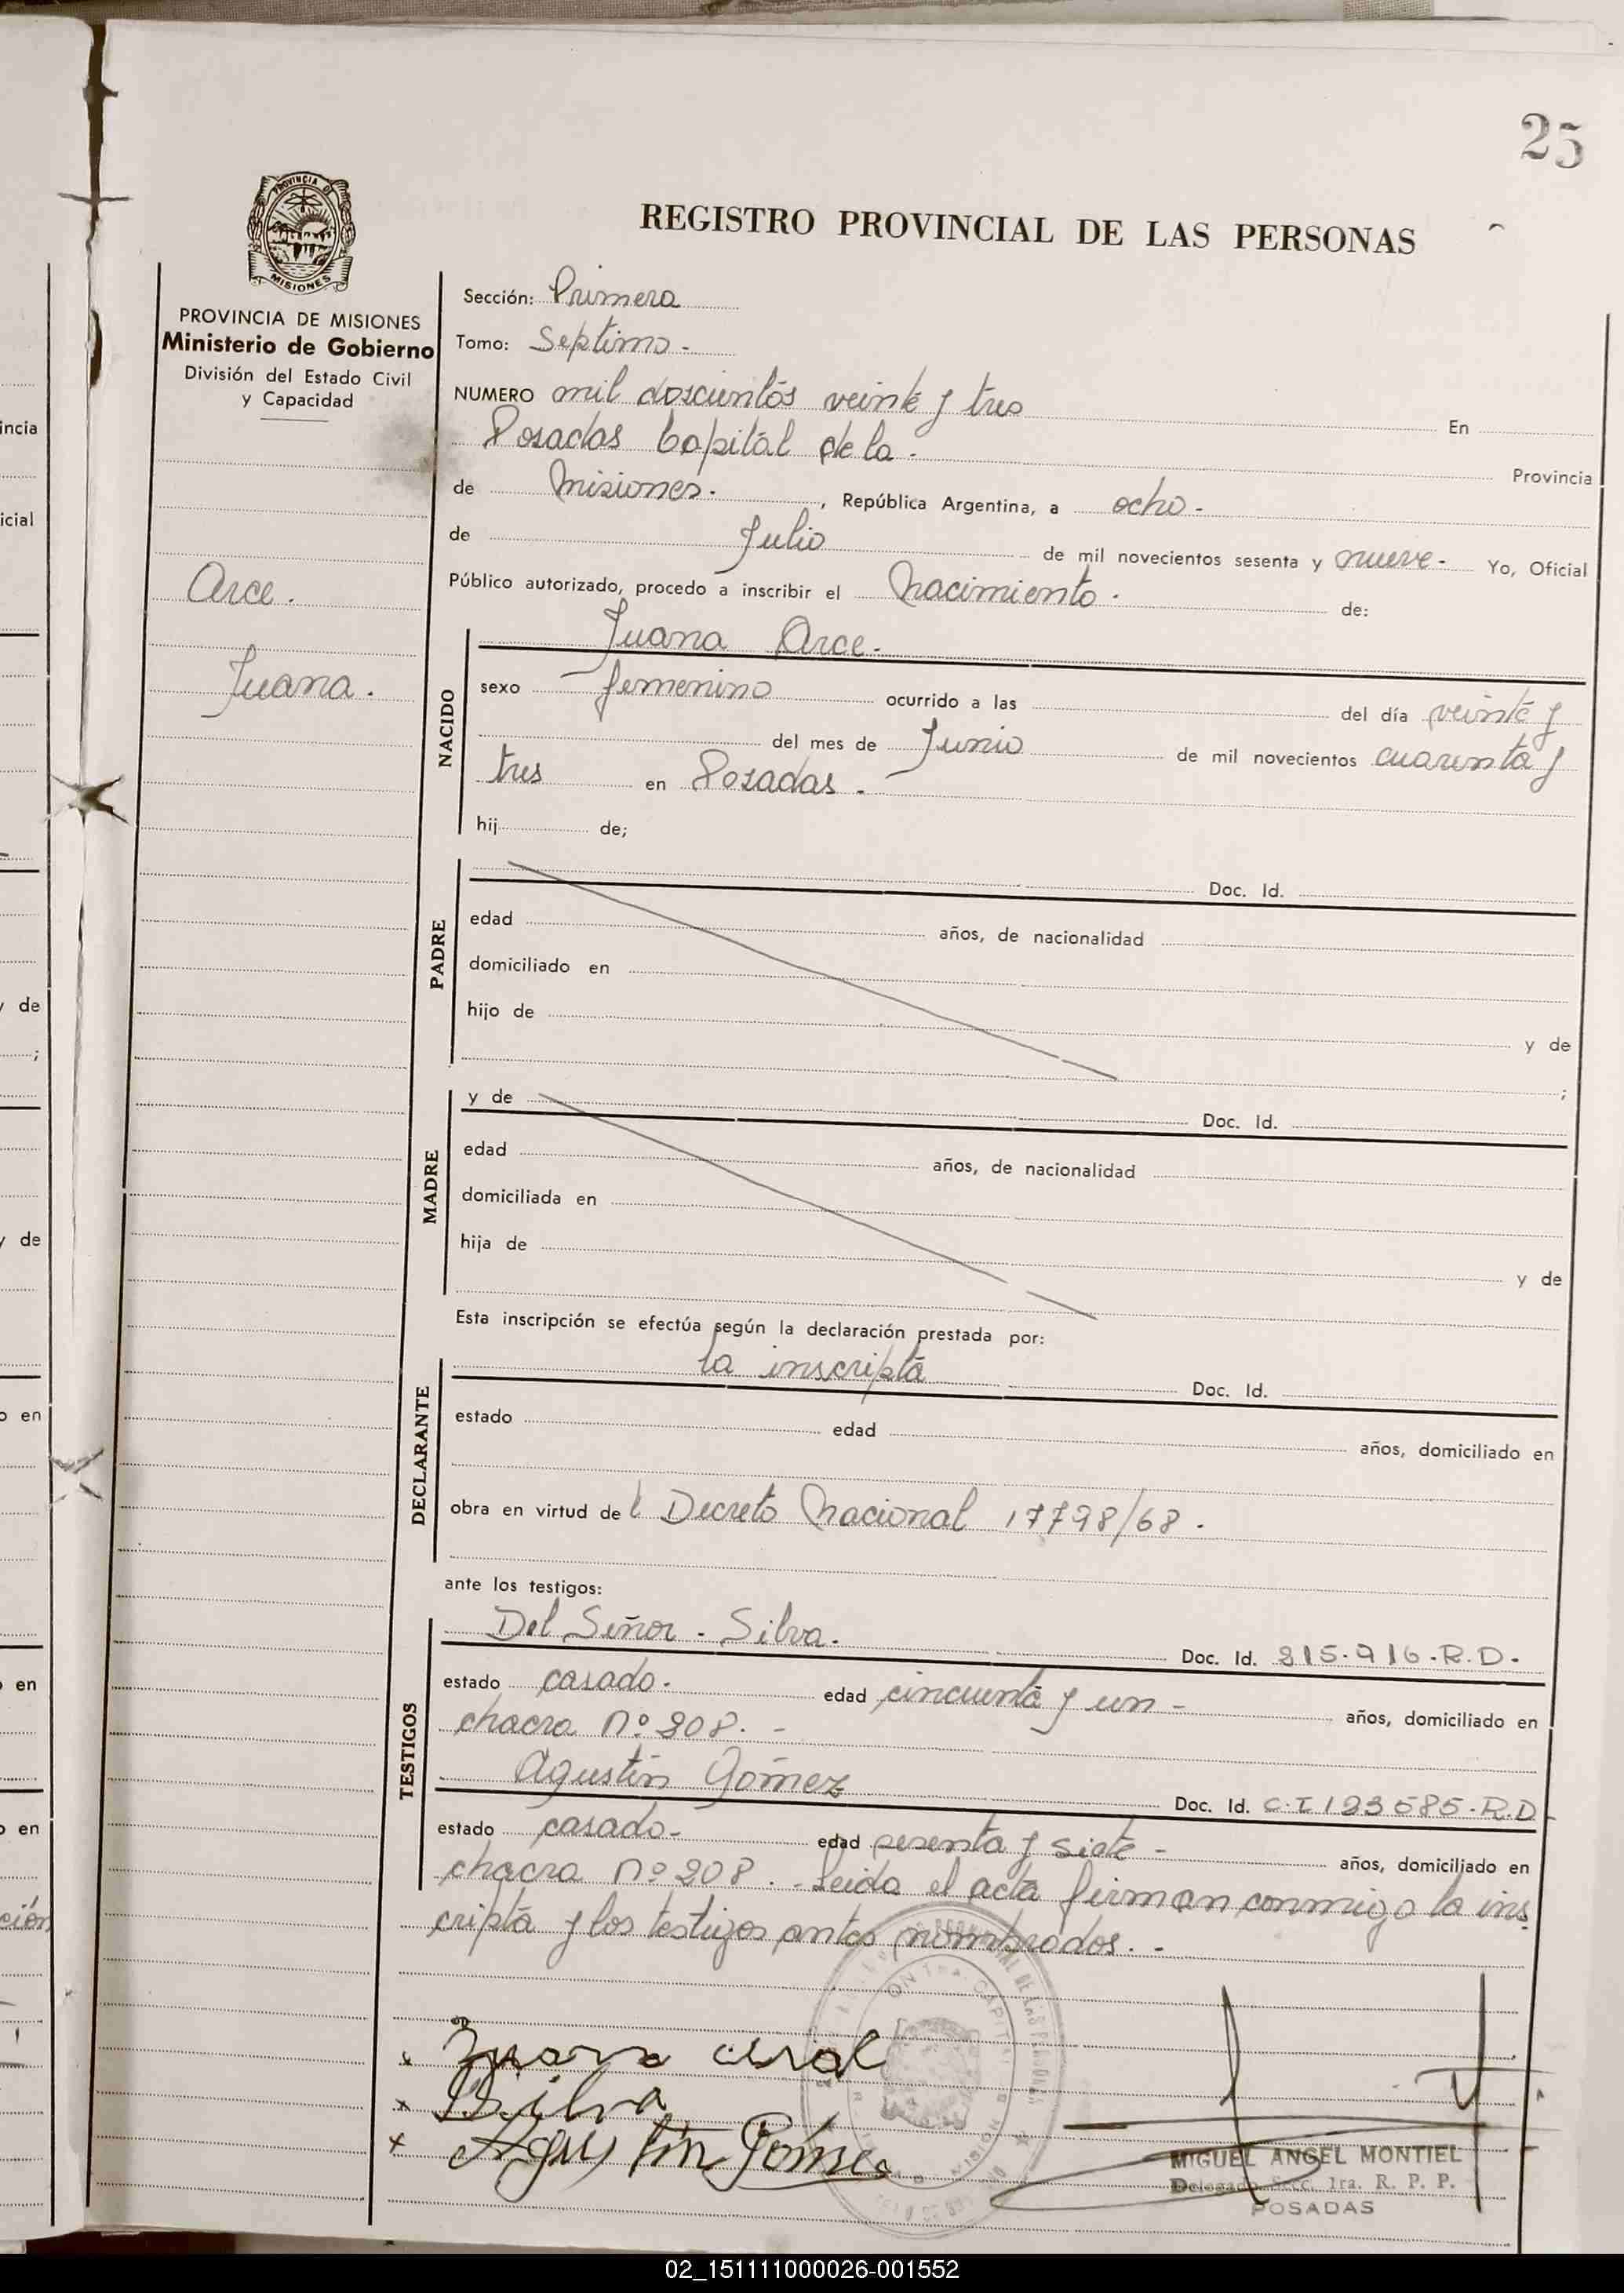 25
PROVINCIA DE
MISIONES
REGISTRO PROVINCIAL DE LAS PERSONAS
PROVINCIA DE MISIONES
Ministerio de Gobierno
División del Estado Civil
y Capacidad
Arce.
Juana.
Sección: Primera
Tomo: Septimo-
NUMERO mil doscientos veinte y tres En
Posadas Capital de la. Provincia
de Misiones. , República Argentina, a ocho-
de Julio de mil novecientos sesenta y nueve- Yo, Oficial
Público autorizado, procedo a inscribir el Nacimiento. de:
NACIDO
Juana Arce.
sexo femenino ocurrido a las del día veinte y
del mes de Junio de mil novecientos cuarenta y
tres en Posadas.
hij de;
PADRE
Doc. Id.
edad años, de nacionalidad
domiciliado en
hijo de
y de
;
MADRE
y de Doc. Id.
edad años, de nacionalidad
domiciliada en
hija de
y de
Esta inscripción se efectúa según la declaración prestada por:
DECLARANTE
la inscripta Doc. Id.
estado edad años, domiciliado en
obra en virtud del Decreto Nacional 17798/68.
ante los testigos:
TESTIGOS
Del Señor - Silva. Doc. Id. 815.916.R.D.
estado casado. edad cincuenta y un- años, domiciliado en
chacra nº 208. -
Agustin Gómez Doc. Id. C.I 123585.R.D
estado casado- edad sesenta y siete- años, domiciliado en
chacra nº 208. - Leida el acta firman conmigo la ins
cripta y los testigos antes nombrados. -
x Juana
x Silva
x Agustin Gómes
MIGUEL ANGEL MONTIEL
Delegado Secc. 1ra. R. P. P.
POSADAS
incia
icial
y de
;
y de
o en
o en
o en
ción
02_151111000026-001552